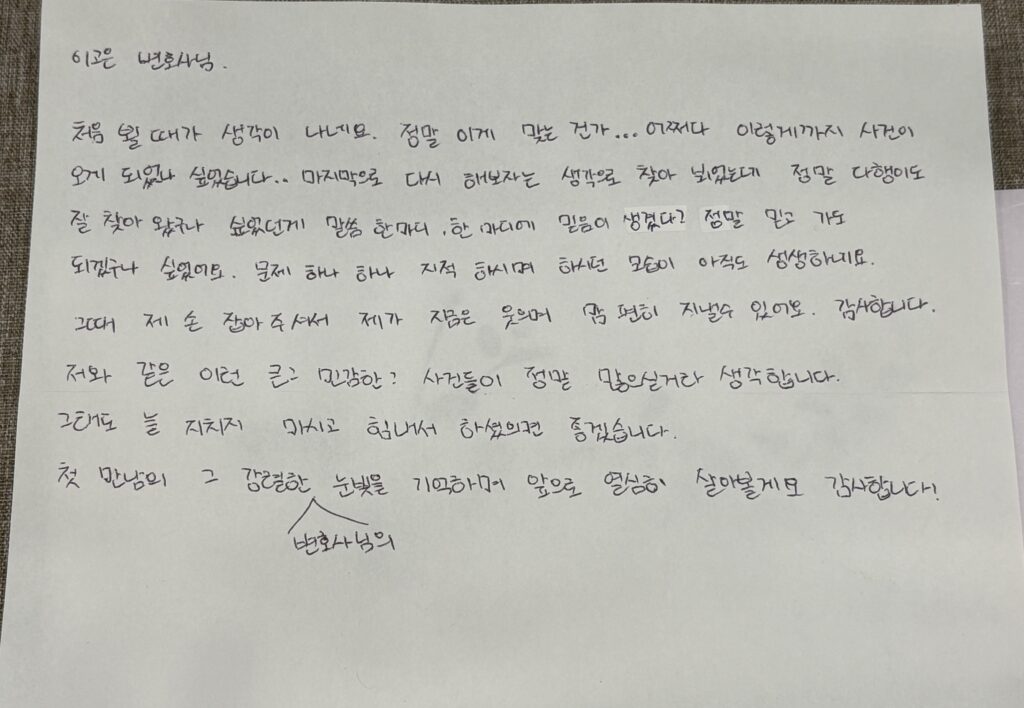 이고은 변호사님.
처음 뵐 때가 생각이 나네요. 정말 이게 맞는 건가... 어쩌다 이렇게까지 사건이
오게 되었나 싶었습니다.. 마지막으로 다시 해보자는 생각으로 찾아 뵈었는데 정말 다행이도
잘 찾아 왔구나 싶었던게 말씀 한마디, 한 마디에 믿음이 생겼다? 정말 믿고 가도
되겠구나 싶었어요. 문제 하나 하나 지적 하시며 하시던 모습이 아직도 생생하네요.
그때 제 손 잡아 주셔서 제가 지금은 웃으며 맘 편히 지낼수 있어요. 감사합니다.
저와 같은 이런 큰? 민감한? 사건들이 정말 많으실거라 생각합니다.
그래도 늘 지치지 마시고 힘내서 하셨으면 좋겠습니다.
첫 만남의 그 강렬한 눈빛을 기억하며 앞으로 열심히 살아볼게요 감사합니다!
변호사님의